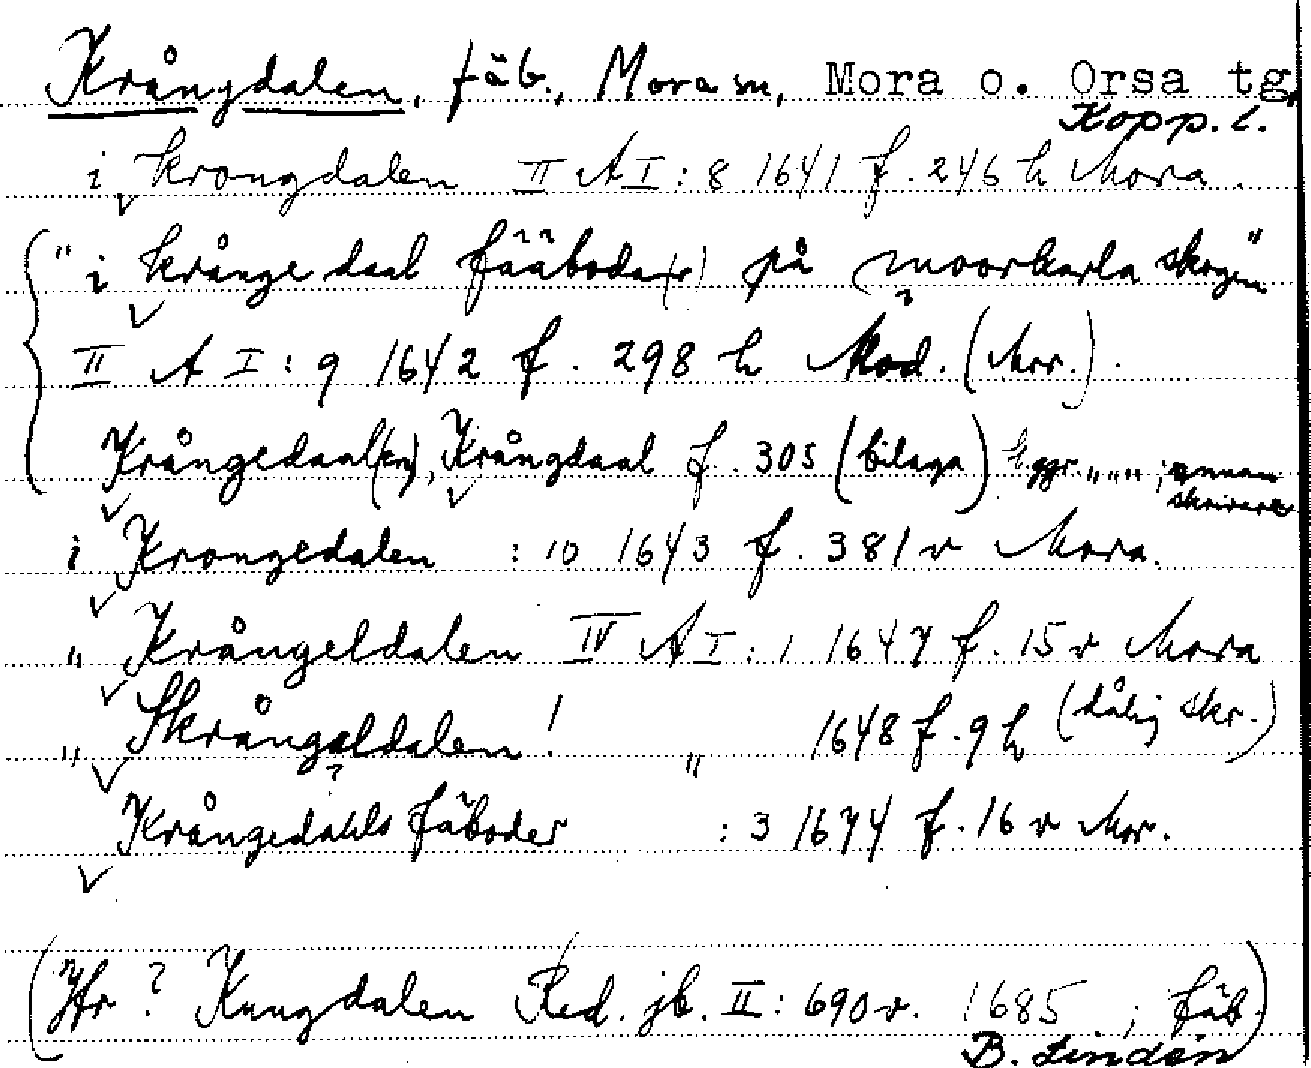 Krångdalen, fäb., Mora sn, Mora o. Orsa tg,
Kopp. l.
i krongdalen II A I : 8 1641 f. 246 h Mora.
"i krånge daal fääboda(r) på moorkarla skogen"
II A I : 9 1642 f. 298 h Mod. (Mor.).
Krångedaal(en), Krångdaal f. 305 (bilaga) ggr. „ „ ; annan
skrivare
i Krongedalen : 10 1643 f. 381 v Mora.
„ Krångeldalen IV A I : 1 1647 f. 15 v Mora
„ Skrångeldalen! „ 1648 f. 9 h (dålig skr.)
?
Krångedahls fäboder : 3 1674 f. 16 v Mor.
(Jfr ? Kungdalen Red. jb. II : 690 v. 1685 ; fäb.)
B. Lindén